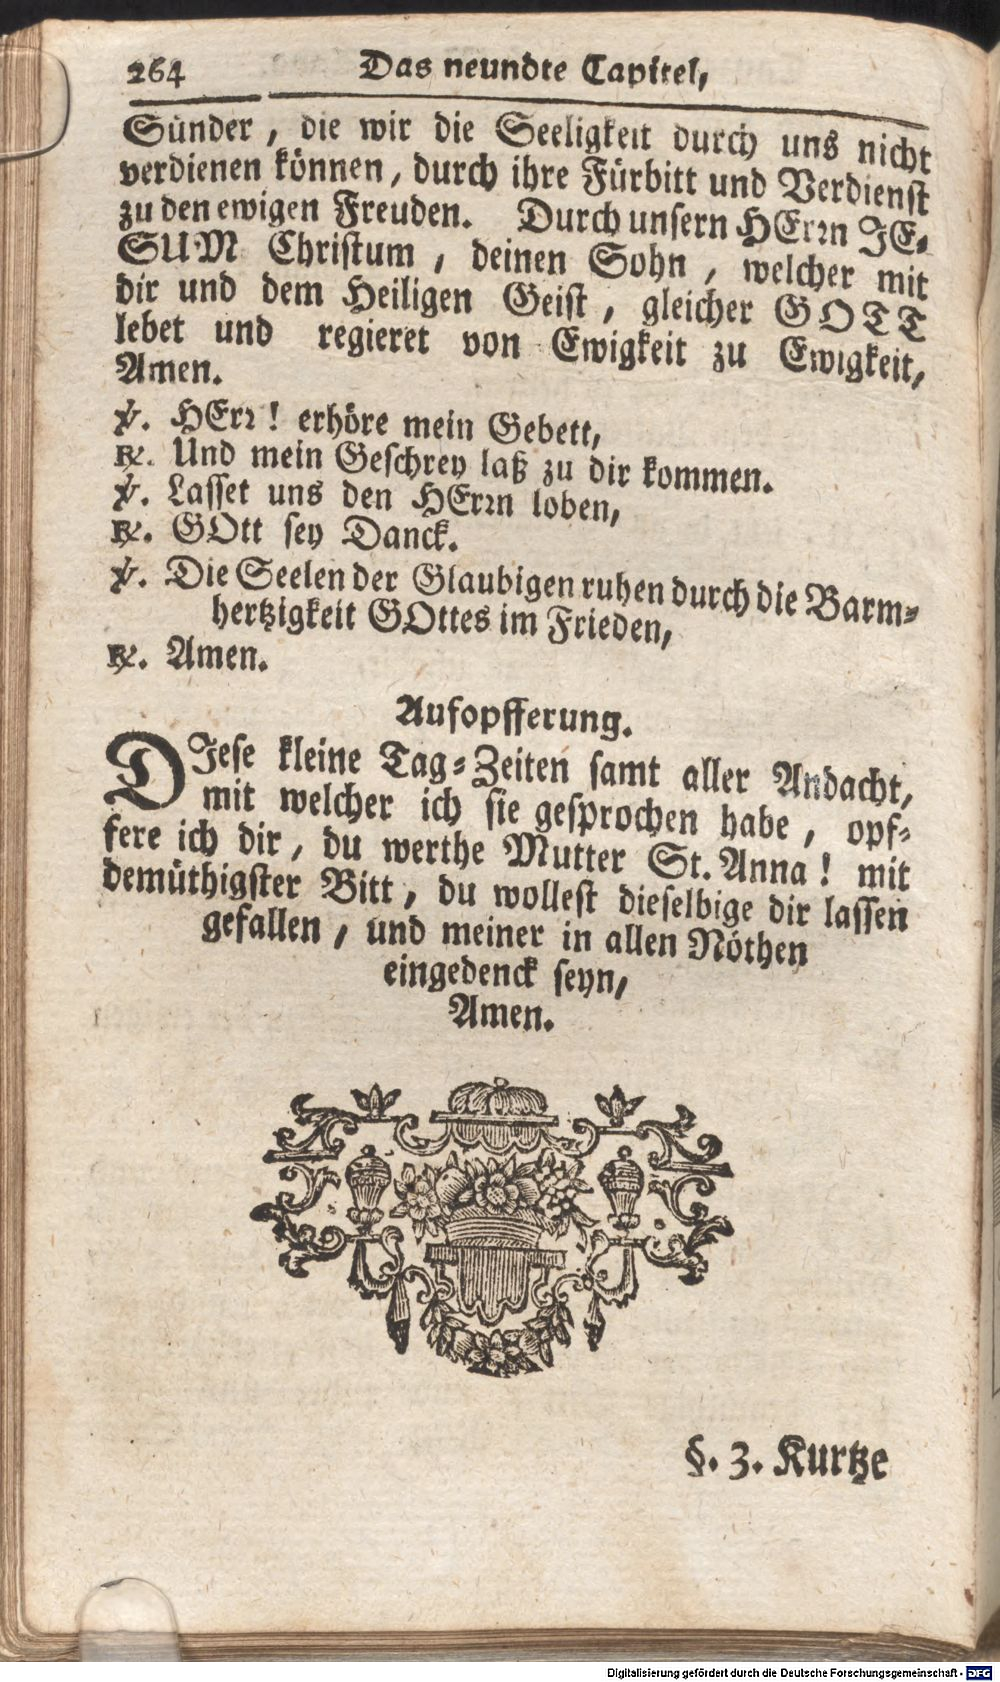 264 Das neundte Capitel,
Sünder, die wir die Seeligkeit durch uns nicht
verdienen können, durch ihre Fürbitt und Verdienst
zu den ewigen Freuden. Durch unsern HErrn JE-
SUM Christum, deinen Sohn, welcher mit
dir und dem Heiligen Geist, gleicher GOTT
lebet und regieret von Ewigkeit zu Ewigkeit,
Amen.
℣. HErr! erhöre mein Gebett,
℟. Und mein Geschrey laß zu dir kommen.
℣. Lasset uns den HErrn loben,
℟. GOtt sey Danck.
℣. Die Seelen der Glaubigen ruhen durch die Barm-
hertzigkeit GOttes im Frieden,
℟. Amen.
Aufopfferung.
DJese kleine Tag-Zeiten samt aller Andacht,
mit welcher ich sie gesprochen habe, opf-
fere ich dir, du werthe Mutter St. Anna! mit
demüthigster Bitt, du wollest dieselbige dir lassen
gefallen, und meiner in allen Nöthen
eingedenck seyn,
Amen.
§. 3. Kurtze
Digitalisierung gefördert durch die Deutsche Forschungsgemeinschaft - DFG